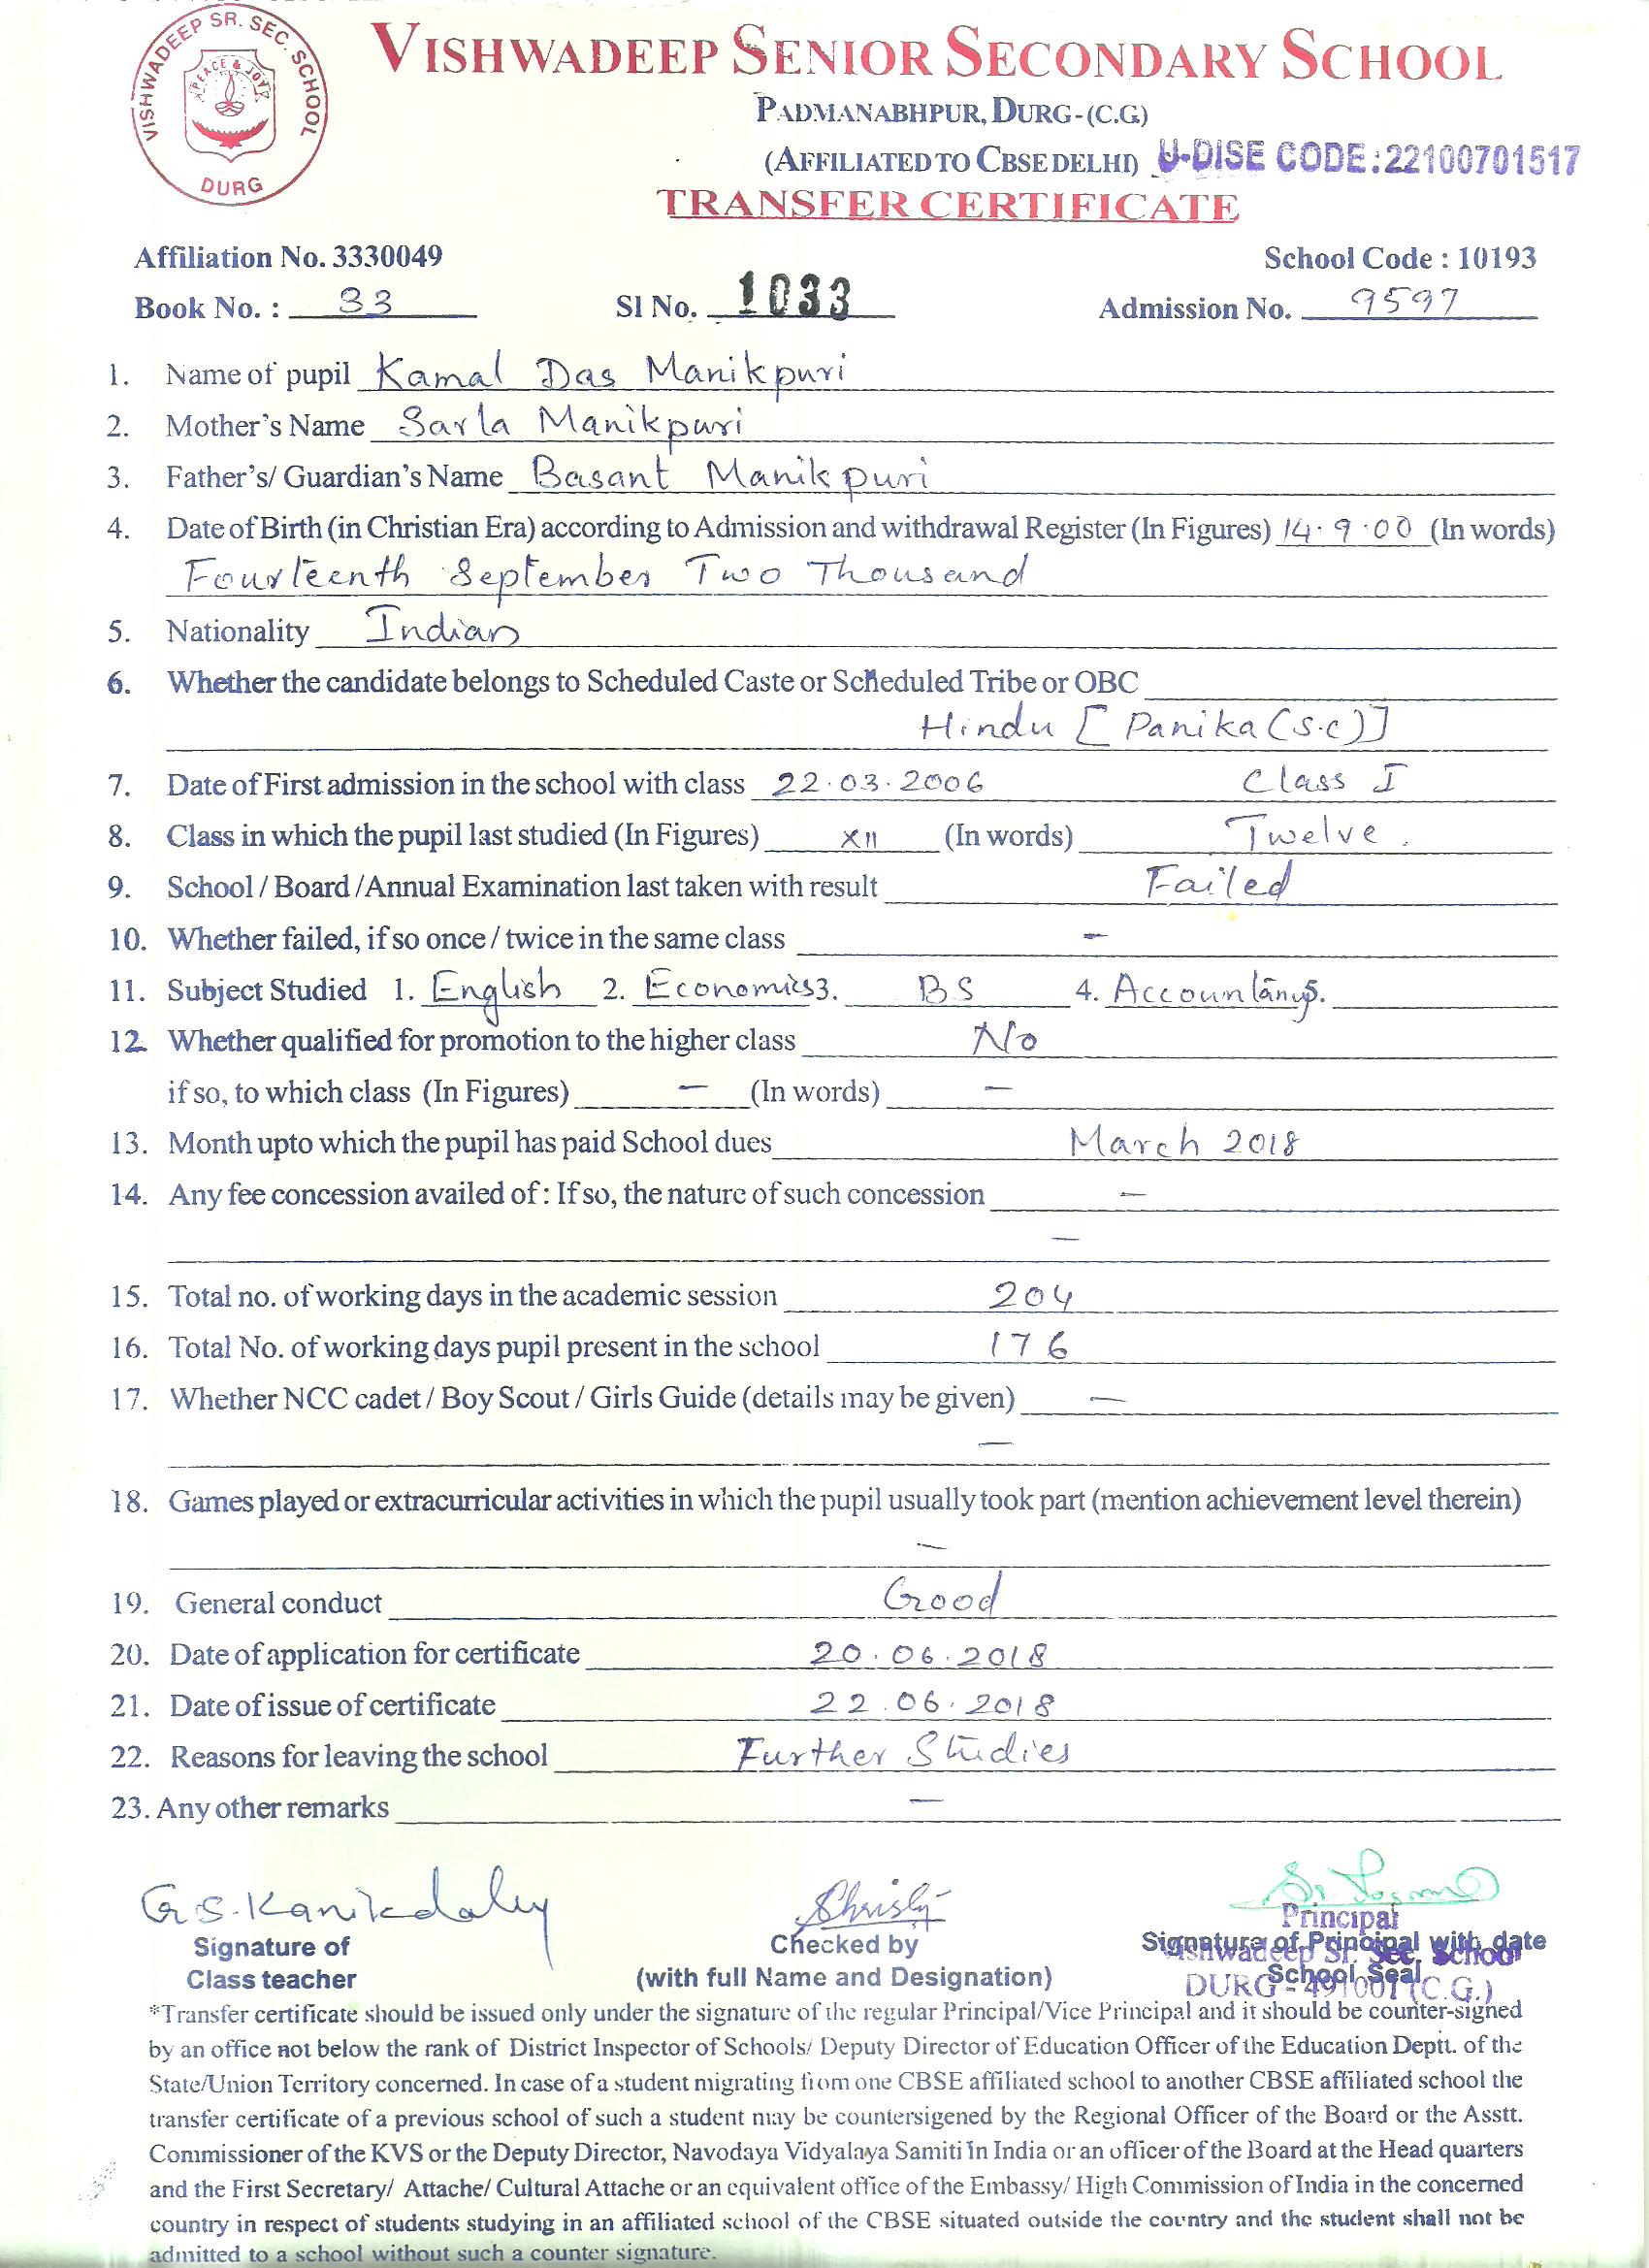 VISHWADEEP SR. SEC. SCHOOL
PEACE & JOY
DURG
VISHWADEEP SENIOR SECONDARY SCHOOL
PADMANABHPUR, DURG-(C.G.)
(AFFILIATED TO CBSE DELHI) U-DISE CODE:22100701517
TRANSFER CERTIFICATE
Affiliation No. 3330049 School Code : 10193
Book No. : 33 Sl No. 1033 Admission No. 9597
1. Name of pupil Kamal Das Manikpuri
2. Mother's Name Sarla Manikpuri
3. Father's/ Guardian's Name Basant Manikpuri
4. Date of Birth (in Christian Era) according to Admission and withdrawal Register (In Figures) 14.9.00 (In words)
Fourteenth September Two Thousand
5. Nationality Indian
6. Whether the candidate belongs to Scheduled Caste or Scheduled Tribe or OBC
Hindu [Panika (S.C)]
7. Date of First admission in the school with class 22.03.2006 Class I
8. Class in which the pupil last studied (In Figures) XII (In words) Twelve.
9. School / Board /Annual Examination last taken with result Failed
10. Whether failed, if so once / twice in the same class -
11. Subject Studied 1. English 2. Economics 3. BS 4. Accountancy 5.
12. Whether qualified for promotion to the higher class No
if so, to which class (In Figures) - (In words) -
13. Month upto which the pupil has paid School dues March 2018
14. Any fee concession availed of : If so, the nature of such concession -
-
15. Total no. of working days in the academic session 204
16. Total No. of working days pupil present in the school 176
17. Whether NCC cadet / Boy Scout / Girls Guide (details may be given) -
-
18. Games played or extracurricular activities in which the pupil usually took part (mention achievement level therein)
-
19. General conduct Good
20. Date of application for certificate 20.06.2018
21. Date of issue of certificate 22.06.2018
22. Reasons for leaving the school Further Studies
23. Any other remarks -
G.S. Kanikdaley
Principal
Signature of Checked by Signature of Principal with date
Vishwadeep Sr. Sec. School
Class teacher (with full Name and Designation) School Seal
DURG - 491001 (C.G.)
*Transfer certificate should be issued only under the signature of the regular Principal/Vice Principal and it should be counter-signed
by an office not below the rank of District Inspector of Schools/ Deputy Director of Education Officer of the Education Deptt. of the
State/Union Territory concerned. In case of a student migrating from one CBSE affiliated school to another CBSE affiliated school the
transfer certificate of a previous school of such a student may be countersigened by the Regional Officer of the Board or the Asstt.
Commissioner of the KVS or the Deputy Director, Navodaya Vidyalaya Samiti in India or an officer of the Board at the Head quarters
and the First Secretary/ Attache/ Cultural Attache or an equivalent office of the Embassy/ High Commission of India in the concerned
country in respect of students studying in an affiliated school of the CBSE situated outside the country and the student shall not be
admitted to a school without such a counter signature.